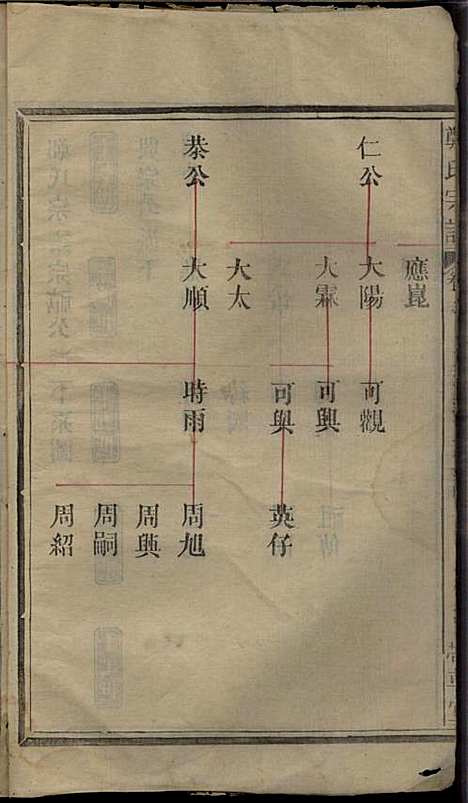 鄭氏宗譜
應崑
仁公
大陽
可觀
大霖
可興
可與
英仔
大太
恭公
大順
時雨
周旭
周興
周嗣
周紹